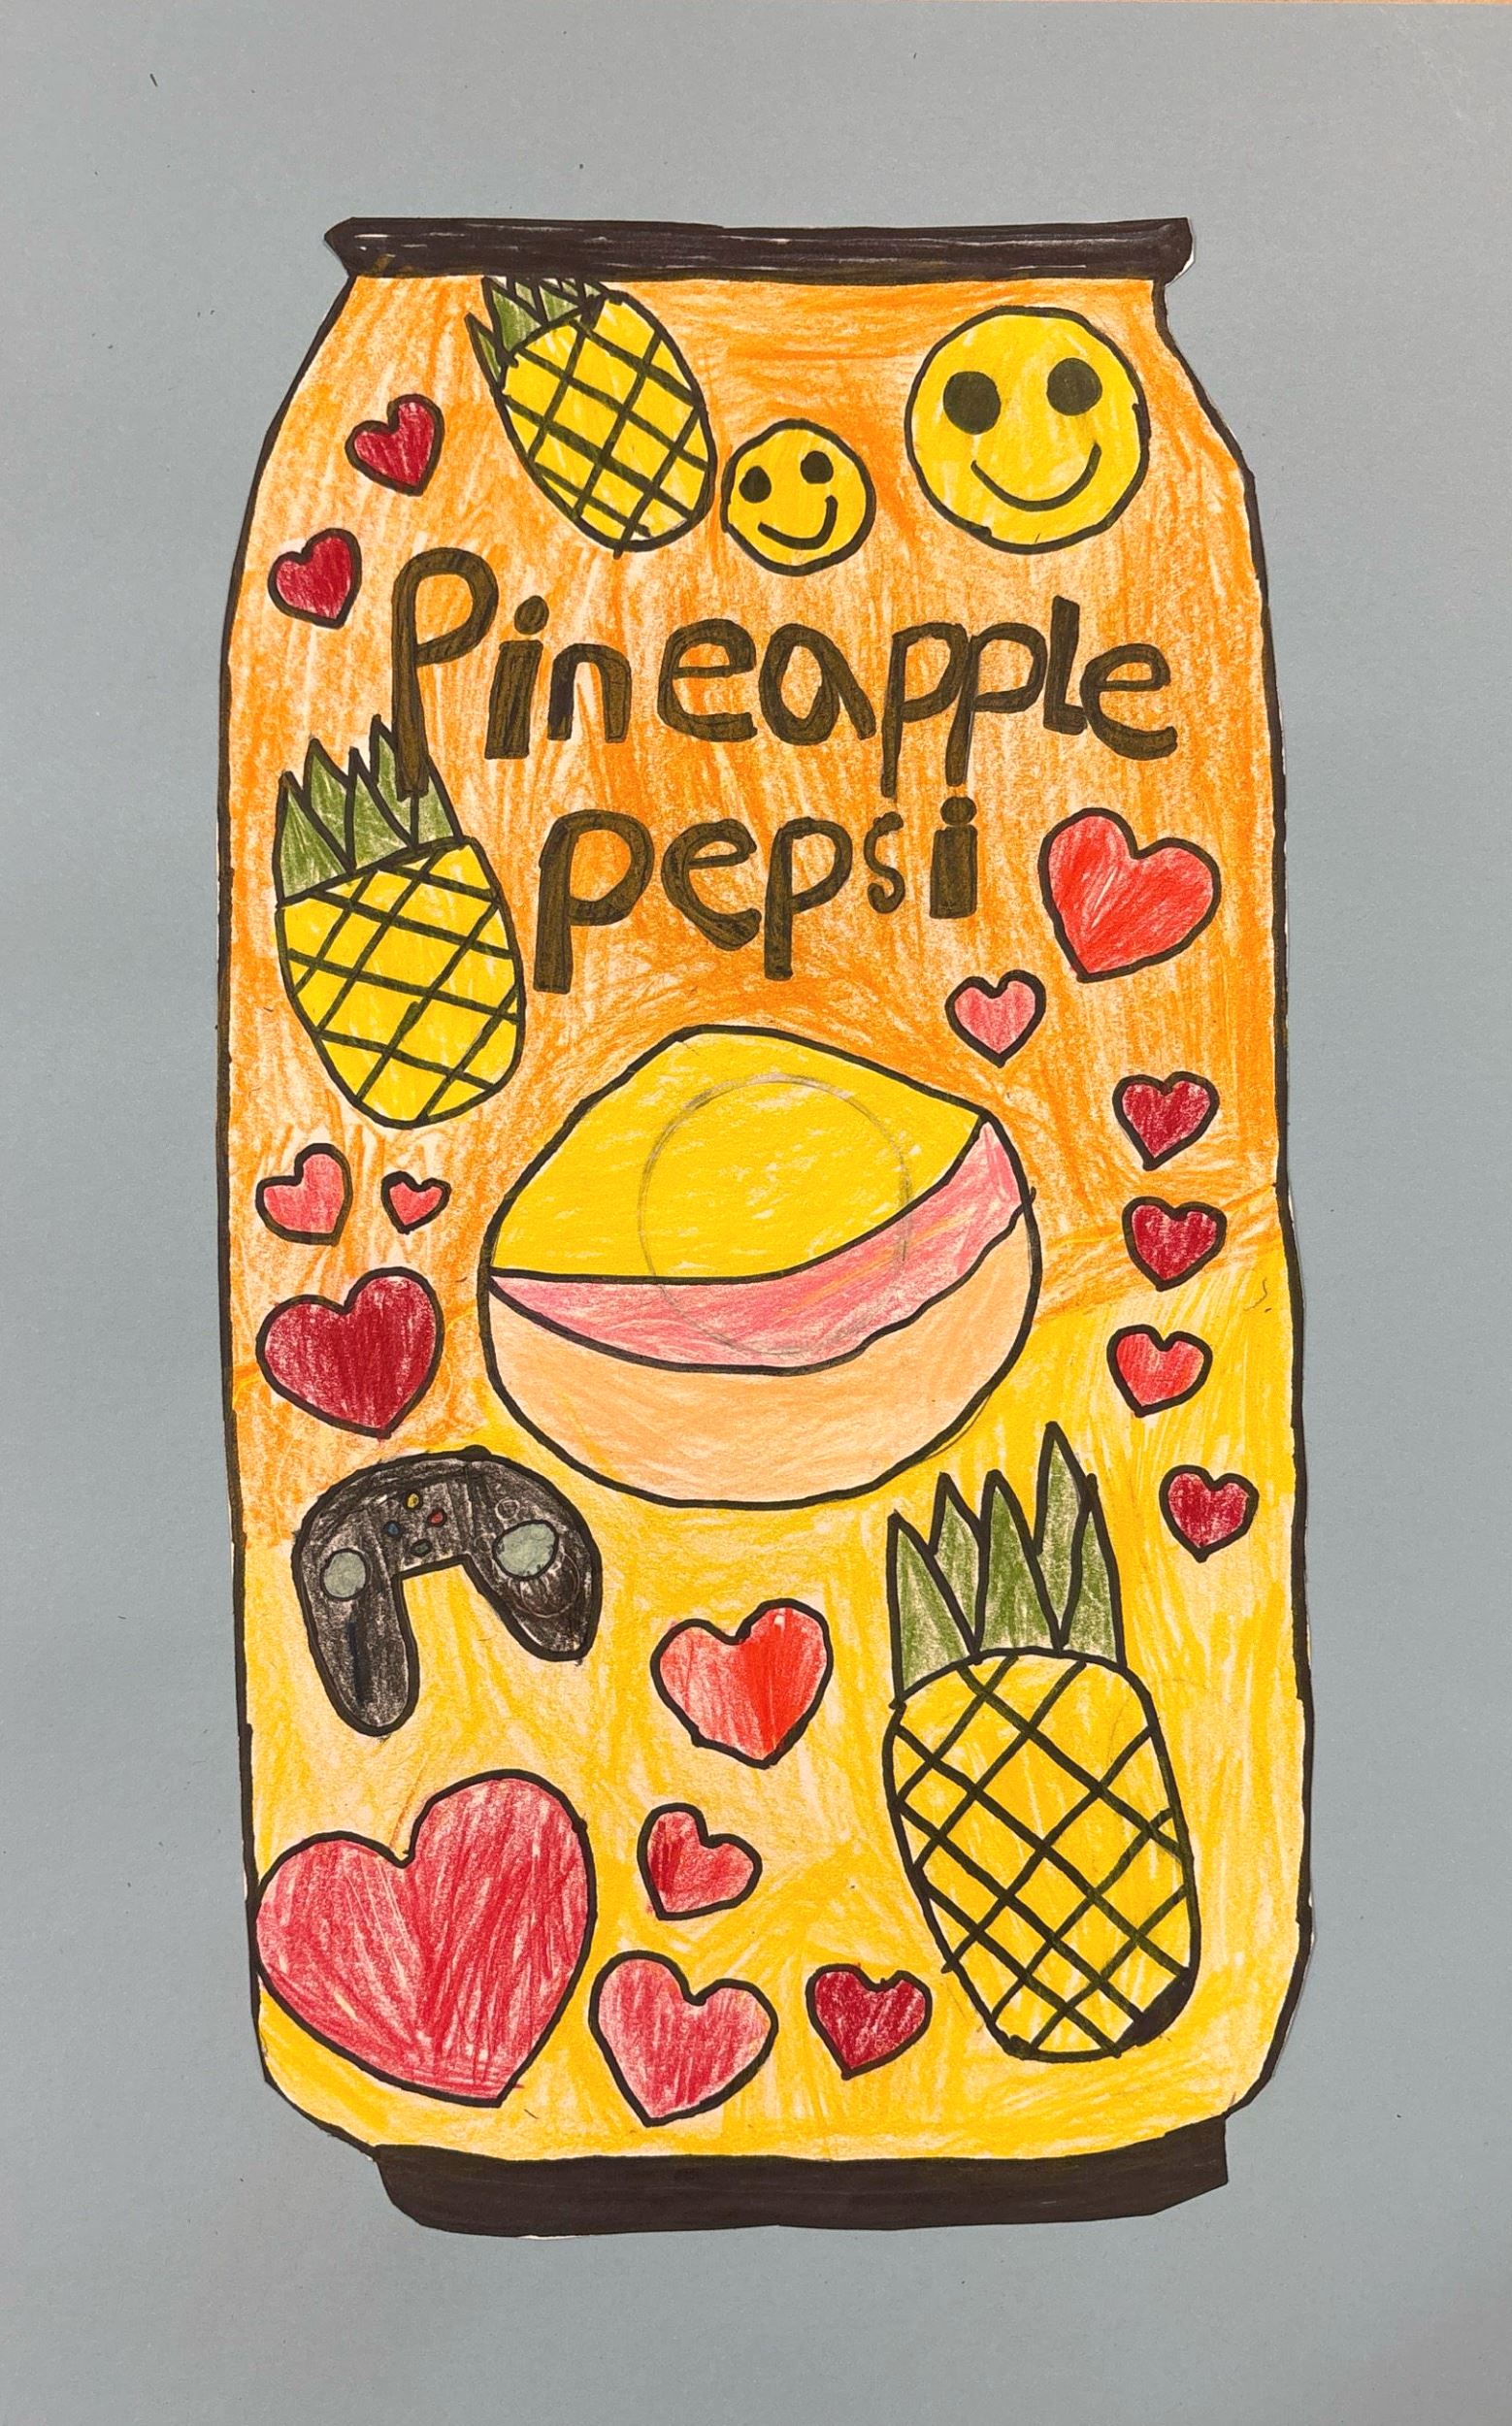 Pineapple
pepsi